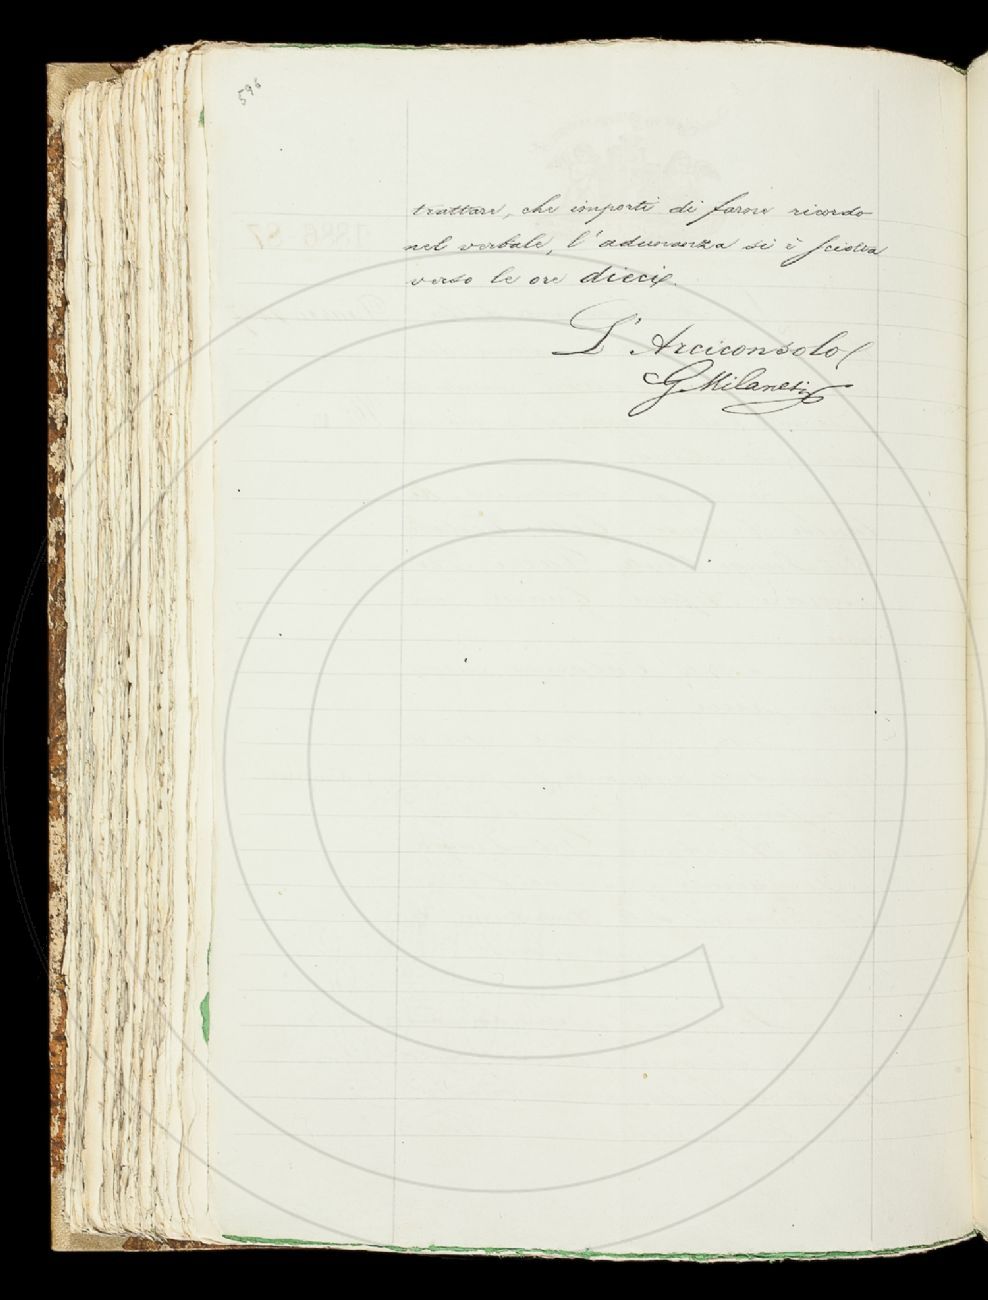 596
trattare, che importi di farne ricordo
nel verbale, l'adunanza si è sciolta
verso le ore dieci.
L'Arciconsolo
G Milanesi